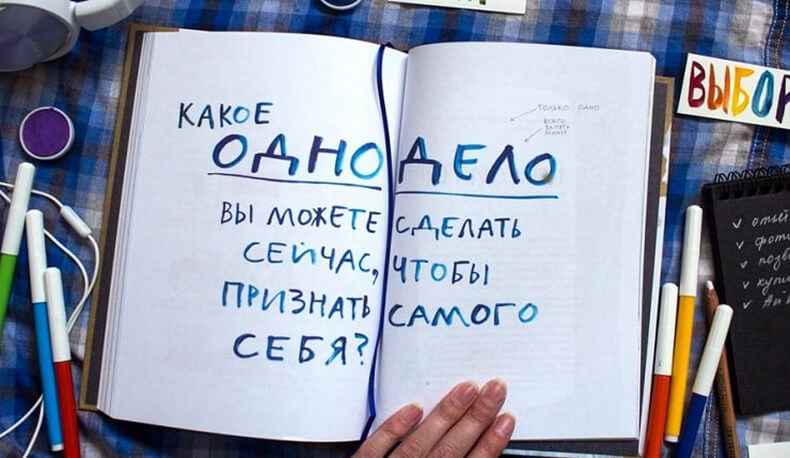 КАКОЕ
ОДНО ДЕЛО
ВЫ МОЖЕТЕ СДЕЛАТЬ
СЕЙЧАС, ЧТОБЫ
ПРИЗНАТЬ САМОГО
СЕБЯ?
ТОЛЬКО ОДНО
ВСЕГО
ЗА ПЯТЬ
МИНУТ
ВЫБОР